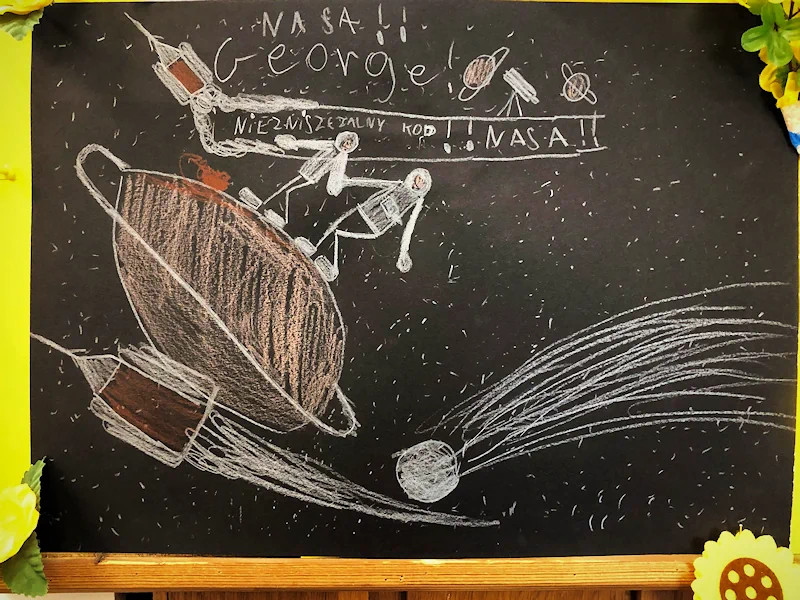 NASA!!
George!
NIEZNISZCZALNY KOD!! NASA!!